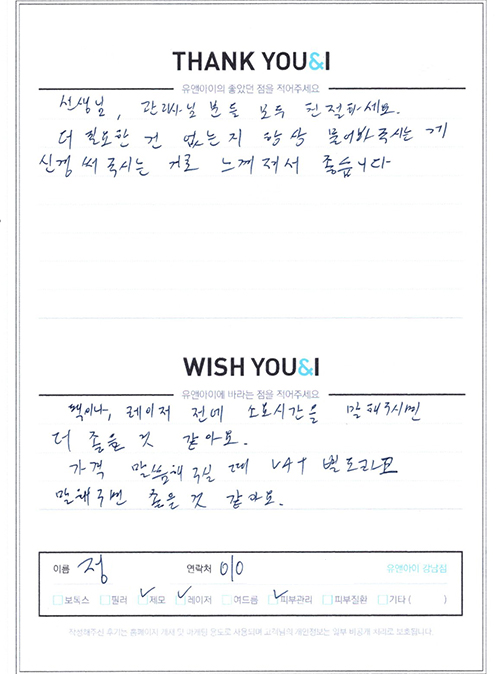 THANK YOU&I
유앤아이의 좋았던 점을 적어주세요
선생님, 관리사님 분들 모두 친절하세요.
더 필요한 건 없는지 항상 물어봐 주시는 게
신경 써 주시는 거로 느껴져서 좋습니다
WISH YOU&I
유앤아이에 바라는 점을 적어주세요
팩이나, 레이저 전에 소요시간을 말해주시면
더 좋을 것 같아요.
가격 말씀해 주실 때 VAT 별도라고
말해주면 좋을 것 같아요.
이름 정 연락처 010 유앤아이 강남점
보톡스 필러 제모 레이저 여드름 피부관리 피부질환 기타 ( )
작성해주신 후기는 홈페이지 게시 및 마케팅 용도로 사용되며 고객님의 개인정보는 일부 비공개 처리로 보호됩니다.